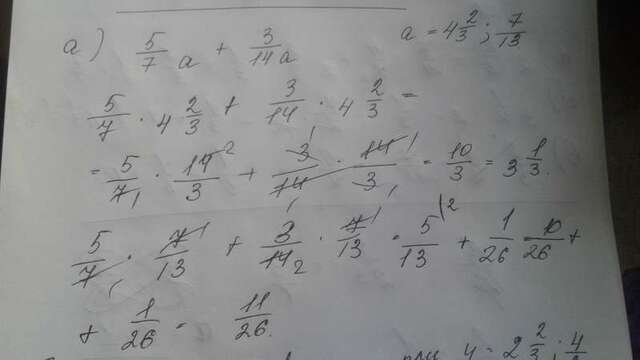 а) 5/7 a + 3/14 a a = 4 2/3 ; 7/13
5/7 · 4 2/3 + 3/14 · 4 2/3 =
= 5/7 1 · 14 2/3 + 3 1/14 1 · 14 1/3 1 = 10/3 = 3 1/3.
5/7 1 · 7 1/13 + 3/14 2 · 7 1/13 = 5/13 |2 + 1/26 = 10/26 +
+ 1/26 = 11/26.
при y = 2 2/3 ;